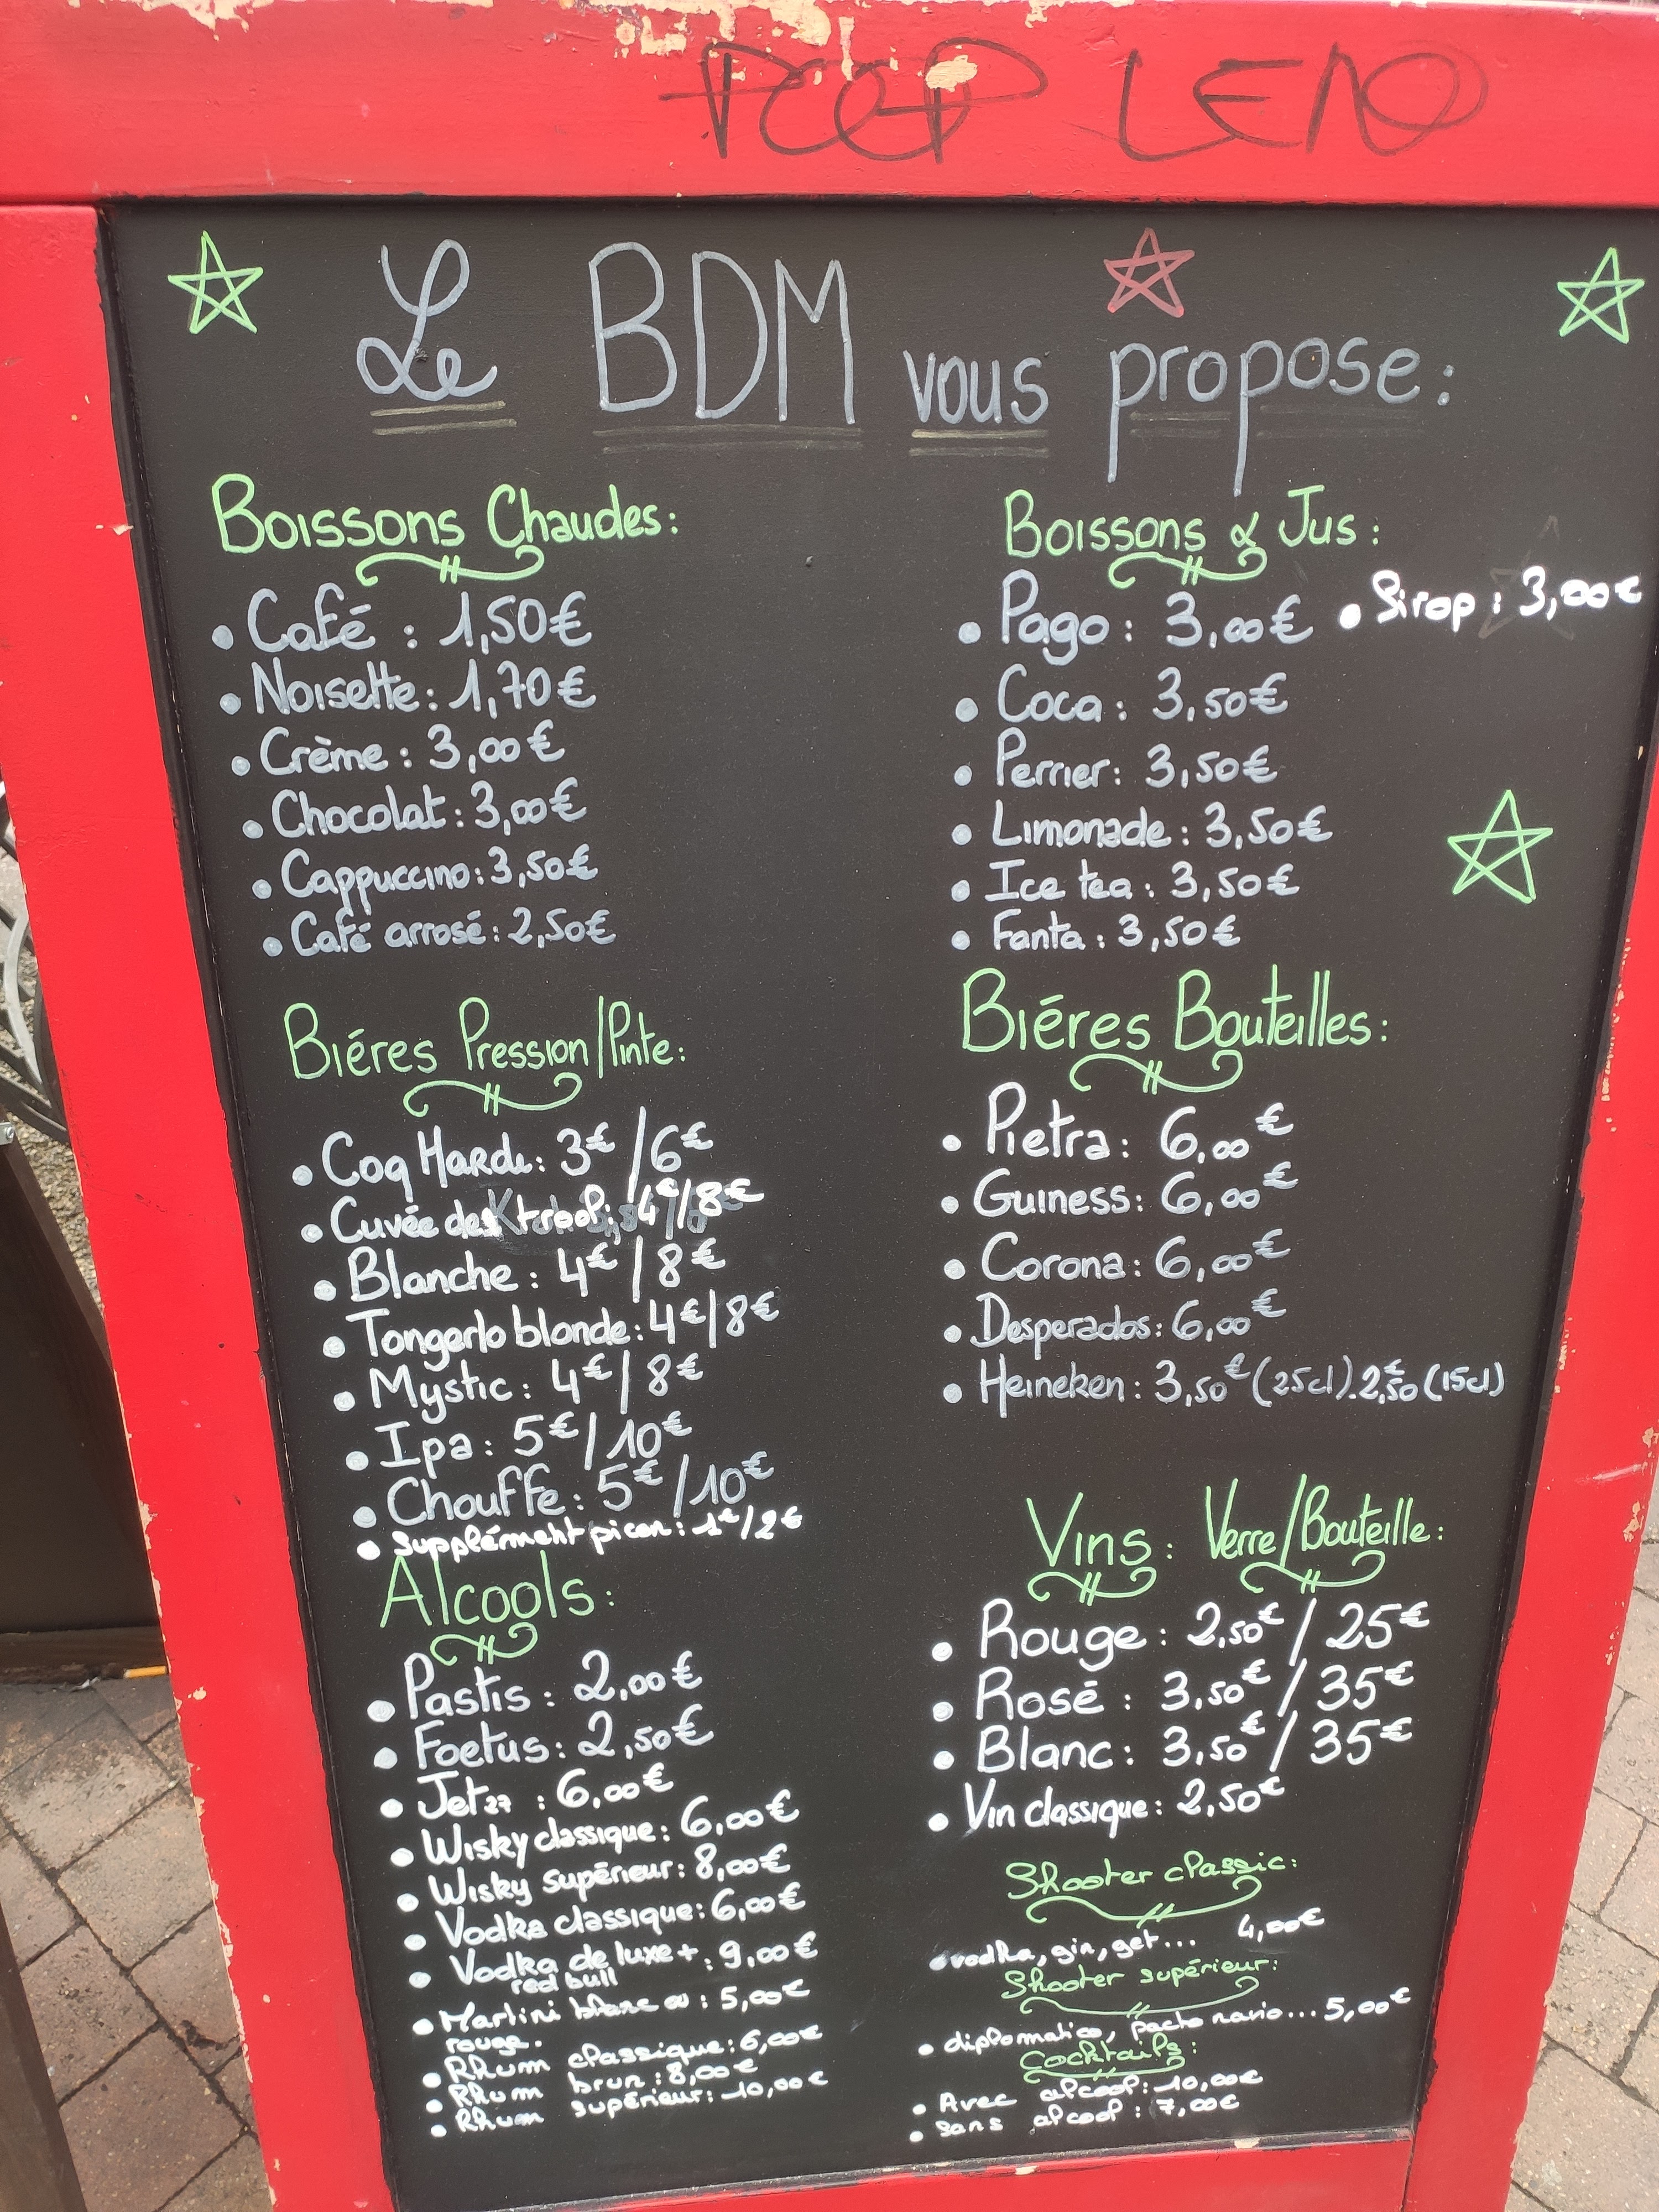 Le BDM vous propose:
Boissons Chaudes:
• Café : 1,50€
• Noisette: 1,70€
• Crème : 3,00€
• Chocolat : 3,00€
• Cappuccino: 3,50€
• Café arrosé: 2,50€
Boissons & Jus:
• Pago: 3,00€ • Sirop : 3,00€
• Coca : 3,50€
• Perrier: 3,50€
• Limonade : 3,50€
• Ice tea : 3,50€
• Fanta : 3,50€
Biéres Pression/Pinte:
• Coq Hardi: 3€/6€
• Cuvée des trool: 4€/8€
• Blanche : 4€/8€
• Tongerlo blonde: 4€/8€
• Mystic : 4€/8€
• Ipa : 5€/10€
• Chouffe: 5€/10€
• Supplémment picon: 1€/2€
Biéres Bouteilles:
• Pietra: 6,00€
• Guiness: 6,00€
• Corona: 6,00€
• Desperados: 6,00€
• Heineken: 3,50€ (25cl). 2,50€ (15cl)
Alcools:
• Pastis : 2,00€
• Foetus : 2,50€
• Jet 27 : 6,00€
• Wisky classique: 6,00€
• Wisky supérieur: 8,00€
• Vodka classique: 6,00€
• Vodka de luxe + : 9,00€
red bull
• Martini blanc ou : 5,00€
rouge.
• Rhum classique: 6,00€
• Rhum brun : 8,00€
• Rhum supérieur: 10,00€
Vins : Verre/Bouteille:
• Rouge : 2,50€ / 25€
• Rosé : 3,50€ / 35€
• Blanc: 3,50€ / 35€
• Vin classique: 2,50€
Shooter classic:
• vodka, gin, get... 4,00€
Shooter supérieur:
• diplomatico, pacto navio... 5,00€
Cocktails:
• Avec alcool: 10,00€
• Sans alcool : 7,00€